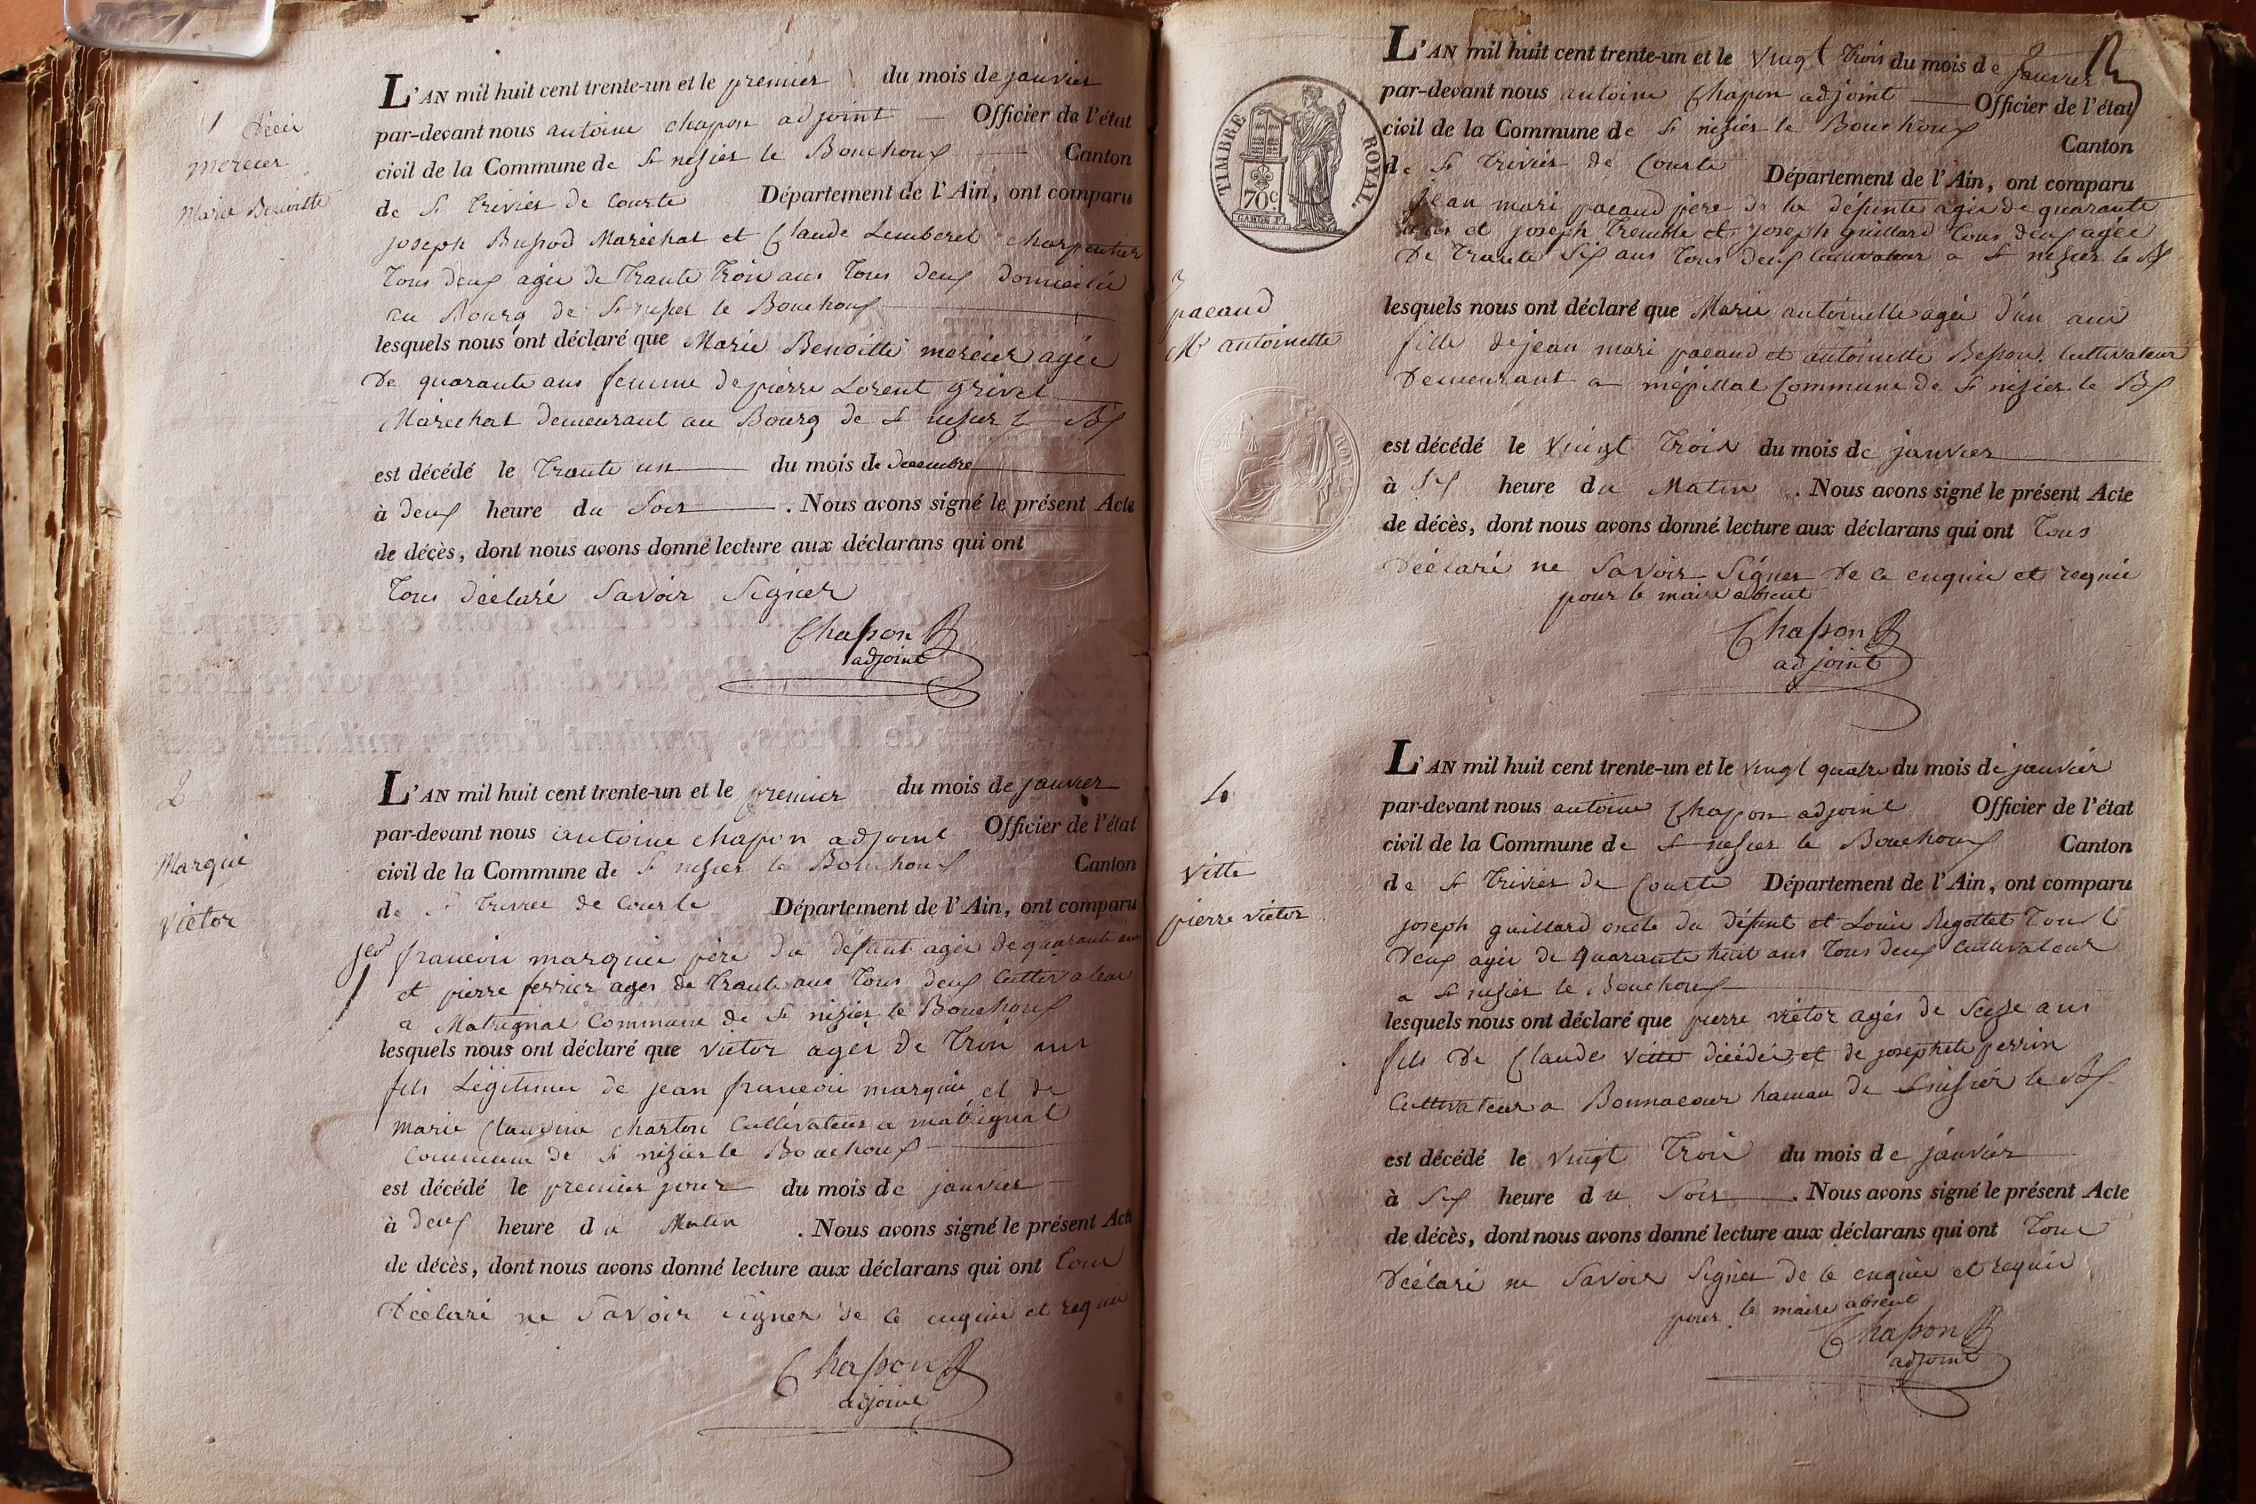 1 Décès
mercier
Marie Benoitte
L'AN mil huit cent trente-un et le premier du mois de janvier
par-devant nous antoine chapon adjoint Officier de l'état
civil de la Commune de St nisier le Bouchoux Canton
de St Trivier de Courte Département de l'Ain, ont comparu
joseph Marechal et Claude charpentier
Tous deux agée de Trante Trois ans Tous deux domicilié
au Bourg de St nisier le Bouchoux
lesquels nous ont déclaré que Marie Benoitte mercier agée
De quarante ans femme de pierre Lorent grivel
Marechal demeurant au Bourg de St nisier le Bx
est décédé le Trante un du mois de decembre
à deux heure du Soir . Nous avons signé le présent Acte
de décès, dont nous avons donné lecture aux déclarans qui ont
Tous déclaré Savoir Signer
Chapon
adjoint
2
Marqui
Victor
L'AN mil huit cent trente-un et le premier du mois de janvier
par-devant nous antoine chapon adjoint Officier de l'état
civil de la Commune de St nisier le Bouchoux Canton
de St Trivier de Courte Département de l'Ain, ont comparu
francoi marquie père du défunt agée de quarante ans
et pierre ferrier ages de Trante ans Tous deux Cultivateur
a Matrignat Commune de St nisier le Bouchoux
lesquels nous ont déclaré que victor agés de Troi ans
fils Légitime de jean francoi marquie et de
Marie Claudine charton Cultivateur a matrignat
Commune de St nisier le Bouchoux
est décédé le premier jour du mois de janvier
à deux heure du Matin . Nous avons signé le présent Acte
de décès, dont nous avons donné lecture aux déclarans qui ont Tous
Déclaré ne Savoir signer de ce enquie et requie
Chapon
adjoint
TIMBRE ROYAL
70 c.
3
pacaud
Me antoinette
L'AN mil huit cent trente-un et le vingt Trois du mois de Janvier
par-devant nous antoine Chapon adjoint Officier de l'état
civil de la Commune de St nisier le Bouchoux Canton
de St Trivier de Courte Département de l'Ain, ont comparu
Jean mari pacaud pere de la defunte agée de quarante
ans et joseph et joseph guillard Tous deux agée
De Trante Six ans Tous deux Cultivateur a St nisier le Bx
lesquels nous ont déclaré que Marie antoinette agée d'un ans
fille de jean mari pacaud et antoinette Besson Cultivateur
Demeurant a mépillat Commune de St nisier le Bx
est décédé le vingt Trois du mois de janvier
à Six heure du Matin . Nous avons signé le présent Acte
de décès, dont nous avons donné lecture aux déclarans qui ont Tous
Déclaré ne Savoir Signer De ce enquie et requie
pour le maire absent
Chapon
adjoint
4
vitte
pierre victor
L'AN mil huit cent trente-un et le vingt quatre du mois de janvier
par-devant nous antoine Chapon adjoint Officier de l'état
civil de la Commune de St nisier le Bouchoux Canton
de St Trivier de Courte Département de l'Ain, ont comparu
joseph guillard oncle du défunt et Louie Rigottet Tous
Deux agée de quarante huit ans Tous deux Cultivateur
a St nisier le Bouchoux
lesquels nous ont déclaré que pierre victor agés de Seize ans
fils De Claude vitte décédé et de josephete perrin
Cultivateur a Bonnacour hamau de St nisier le Bx
est décédé le vingt Troi du mois de janvier
à Six heure du Soir . Nous avons signé le présent Acte
de décès, dont nous avons donné lecture aux déclarans qui ont Tous
Déclaré ne Savoir Signer de ce enquie et requie
pour le maire absent
Chapon
adjoint